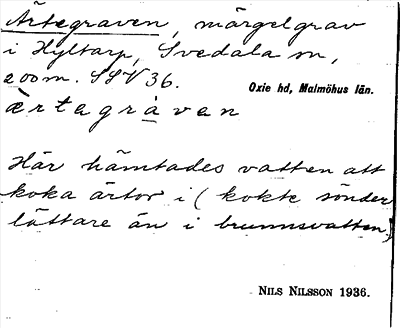 Ärtegraven, märgelgrav
i Hyltarp, Svedala sn,
200 m. SSV 36.
Oxie hd, Malmöhus län.
ærtagravan
Här hämtades vatten att
koka ärtor i (kokte sönder
lättare än i brunnsvatten.)
NILS NILSSON 1936.